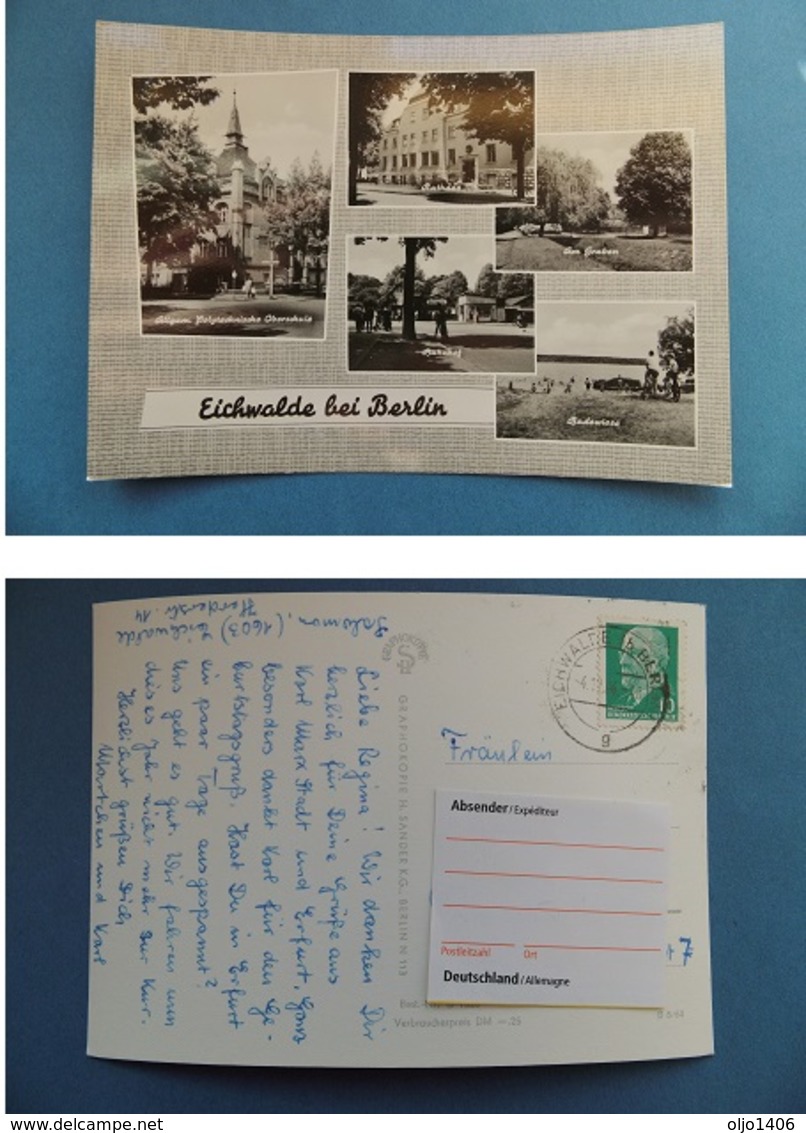 Allgem. Polytechnische Oberschule
Rathaus
Am Graben
Bahnhof
Badewiese
Eichwalde bei Berlin
Salomon, (1603) Eichwalde
Herderstr. 14
Liebe Regina! Wir danken Dir
herzlich für Deine Grüße aus
Karl Marx Stadt und Erfurt. Ganz
besonders dankt Karl für den Ge-
burtstagsgruß. Hast Du in Erfurt
ein paar Tage ausgespannt?
Uns geht es gut. Wir fahren nun
dieses Jahr nicht mehr zur Kur.
Herzlichst grüßen Dich
Martchen und Karl
GRAPHOKOPIE
GRAPHOKOPIE H. SANDER K.G., BERLIN N 113
EICHWALDE b. BERLIN
g
10
Fräulein
Absender / Expéditeur
Postleitzahl Ort
Deutschland / Allemagne
7
Verbraucherpreis DM —,25
oljo1406